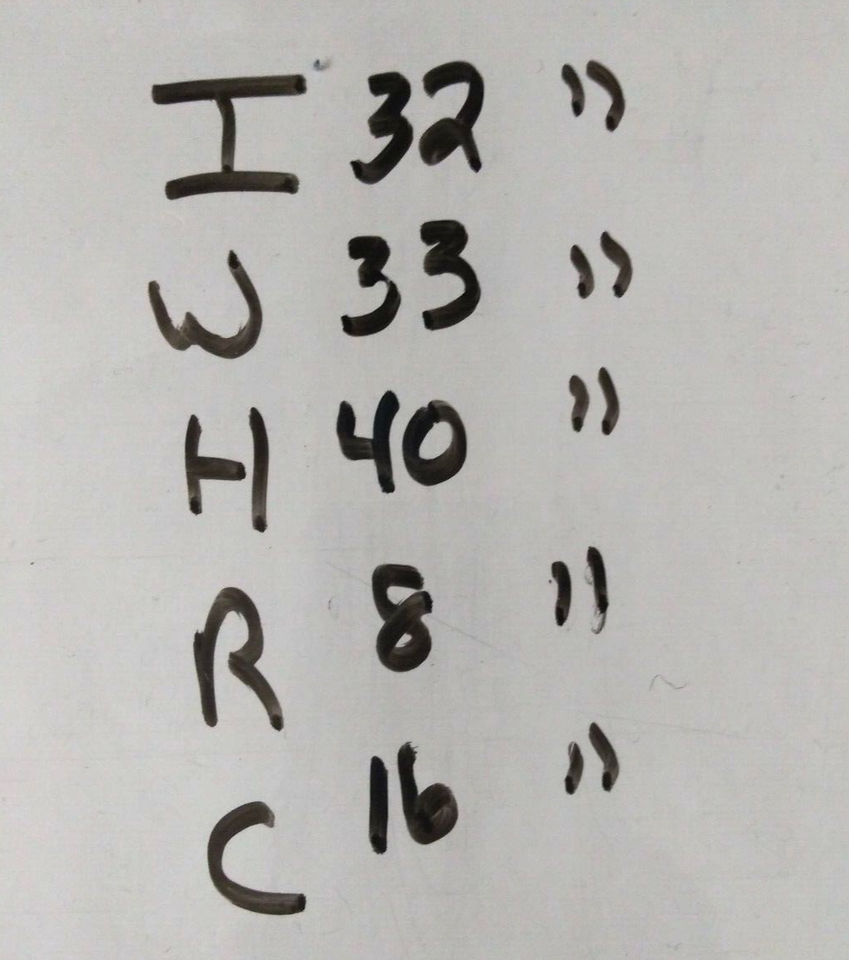 I 32 "
W 33 "
H 40 "
R 8 "
C 16 "